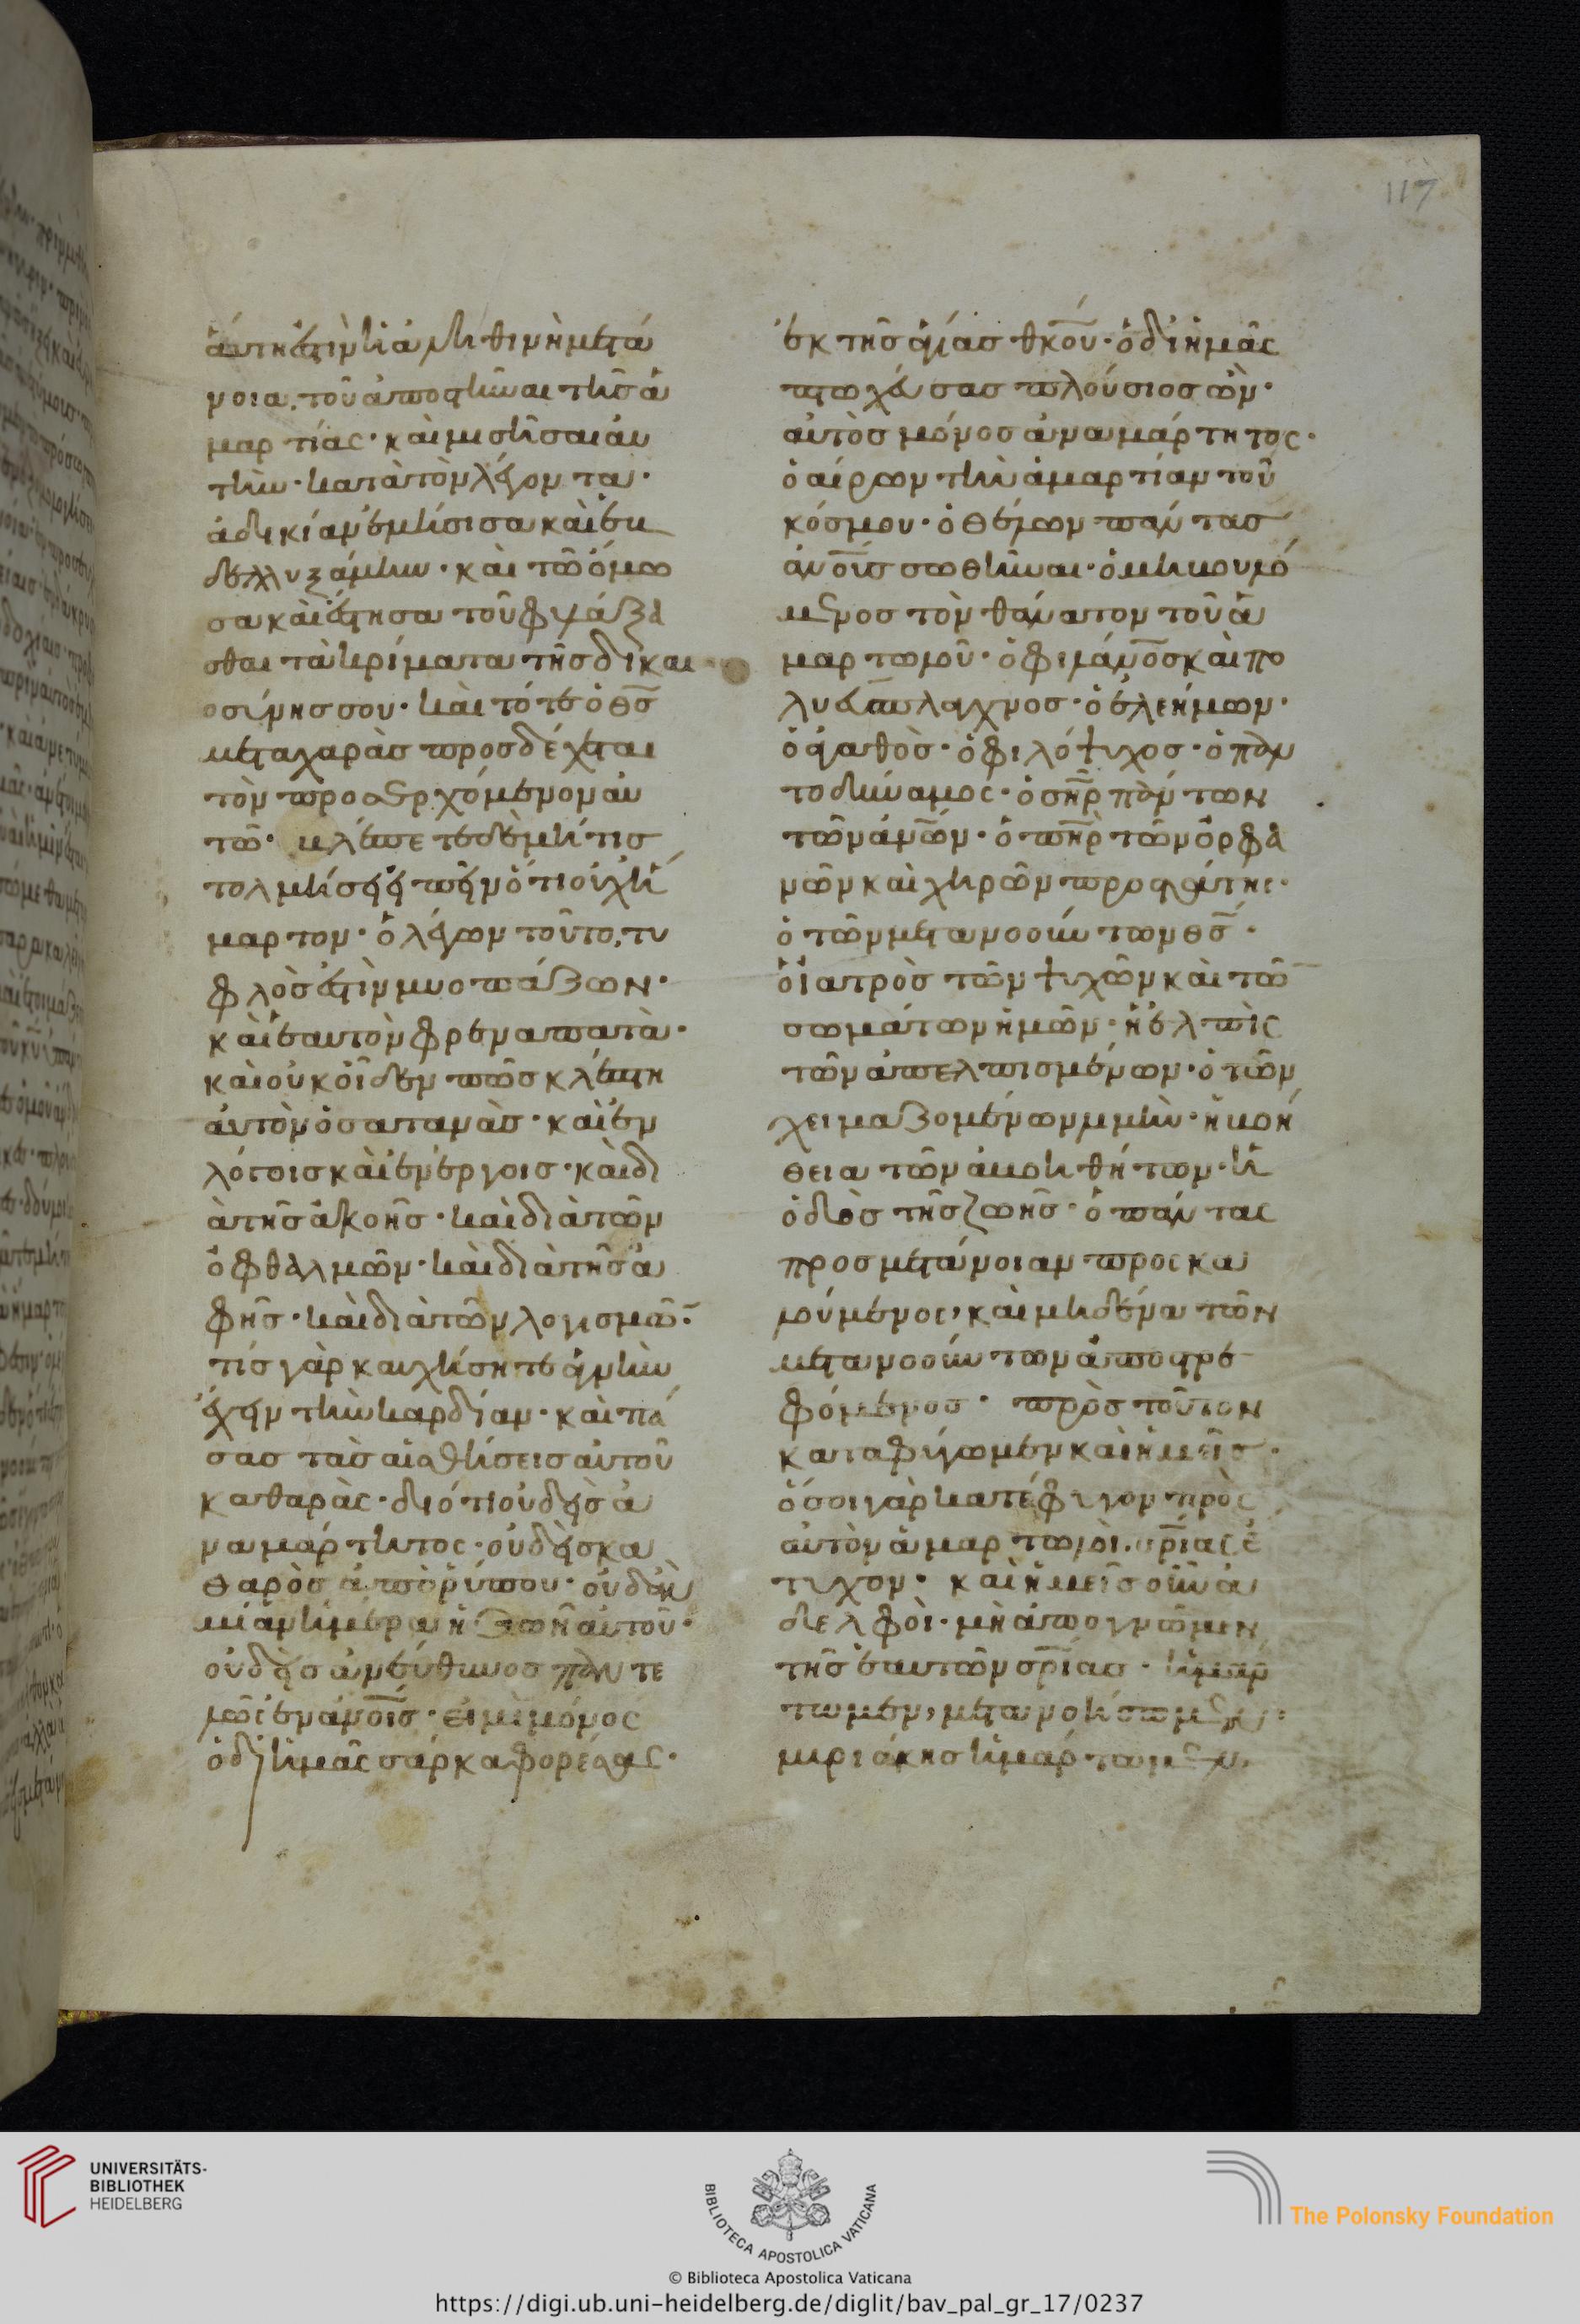 117
αὕτη ἐστὶν ἡ ἀληθινὴ μετά
νοια. τοῦ ἀποστῆναι τῆς ἁ
μαρτίας· καὶ μισῆσαι αὐ
τὴν· κατὰ τὸν λέγοντα·
ἀδικίαν ἐμίσησα καὶ ἐβ
δελυξάμην· καὶ τῶ ὄμω
σα καὶ ἔστησα τοῦ φυλάξα
σθαι τὰ κρίματα τῆς δικαι
οσύνης σου· καὶ τότε ὁ θς
μετα χαρᾶς προσδέχεται
τὸν προσερχόμενον αὐ
τῶ· βλέπετε δὲ μή τις
τολμήση εἰπεῖν ὅτι οὐχ ἥ
μαρτον· ὁ λέγων τοῦτο, τυ
φλὸς ἐστὶν μυοπάζων·
καὶ ἑαυτὸν φρεναπατᾶ·
καὶ οὐκ οἶδεν πῶς κλέπτη
αὐτὸν ὁ σατανᾶς· καὶ ἐν
λόγοις καὶ ἐν ἔργοις· καὶ δι
ὰ τῆς ἀκοῆς· καὶ διὰ τῶν
ὀφθαλμῶν· καὶ διὰ τῆς ἁ
φῆς· καὶ διὰ τῶν λογισμῶ·
τίς γὰρ καυχήσητε ἁγνὴν
ἔχειν τὴν καρδίαν· καὶ πά
σας τὰς αἰσθήσεις αὐτοῦ
καθαρὰς· διότι οὐδεὶς ἀ
ναμάρτητος· οὐδεὶς κα
θαρὸς ἀπὸ ῥύπου· οὐδ' ἂν
μίαν ἡμέρα ἡ ζωὴ αὐτοῦ·
οὐδεὶς ἀνεύθυνος παντε
λῶς ἐν ἀνοις· εἰ μὶ μόνος
ὁ δι' ἡμᾶς σάρκα φορέσας·
ἐκ τῆς ἁγίας θκου· ὁ δι' ἡμᾶς
πτωχεύσας πλούσιος ὢν·
αὐτὸς μόνος ἀναμάρτητος·
ὁ αἴρων τὴν ἁμαρτίαν τοῦ
κόσμου· ὁ θέλων πάντας
ἀνους σωθῆναι· ὁ μὴ βουλό
μενος τὸν θάνατον τοῦ ἁ
μαρτωλοῦ· ὁ φιλάνος καὶ πο
λυεύσπλαγχνος· ὁ ἐλεήμων·
ὁ ἀγαθὸς· ὁ φιλόψυχος· ὁ παν
τοδύναμος· ὁ σηρ πάντων
τῶν ἀνων· ὁ πηρ τῶν ὀρφα
νῶν καὶ χηρῶν προστάτης·
ὁ τῶν μετανοούντων θς·
ὁ ἰατρὸς τῶν ψυχῶν καὶ τῶ
σωμάτων ἡμῶν· ἡ ἐλπὶς
τῶν ἀπελπισμένων· ὁ τῶν
χειμαζομένων λιμὴν· ἡ βοή
θεια τῶν ἀβοηθήτων· ἡ
ὁδὸς τῆς ζωῆς· ὁ πάντας
προς μετάνοιαν προσκα
λούμενος, καὶ μηδένα τῶν
μετανοούντων ἀποστρε
φόμενος· πρὸς τοῦτον
καταφύγωμεν καὶ ἡμεῖς·
ὅσοι γὰρ κατέφυγον πρὸς
αὐτὸν ἁμαρτωλοὶ, σριας ἔ
τυχον· καὶ ἡμεῖς οὖν ἀ
δελφοὶ· μὴ ἀπογνῶμεν
τῆς ἑαυτῶν σριας· ἡμάρ
τωμεν, μετανοήσωμεν·
μυριάκης ἡμάρτωμεν,
UNIVERSITÄTS-
BIBLIOTHEK
HEIDELBERG
BIBLIOTECA APOSTOLICA VATICANA
The Polonsky Foundation
© Biblioteca Apostolica Vaticana
https://digi.ub.uni-heidelberg.de/diglit/bav_pal_gr_17/0237